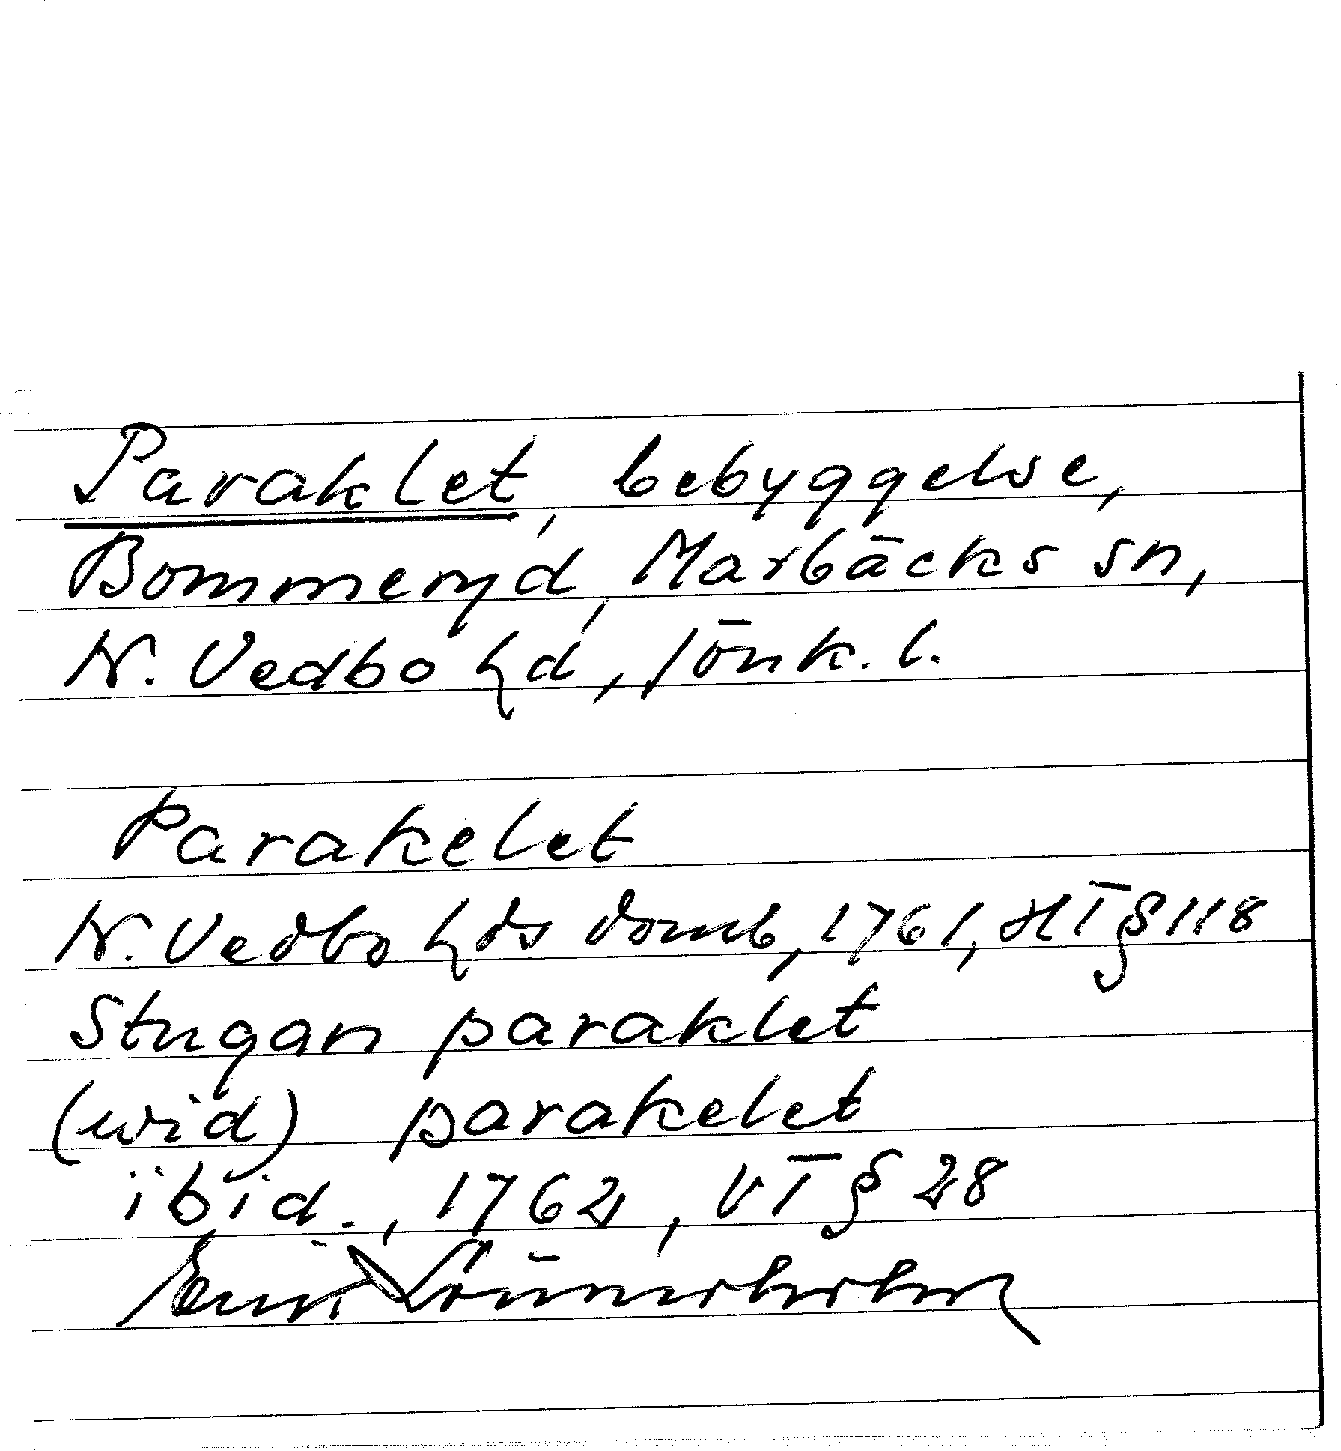 Paraklet, bebyggelse,
Bommeryd, Marbäcks sn,
N. Vedbo hd, Jönk. l.
Parakelet
N. Vedbo hds domb, 1761, HT § 118
Stugan paraklet
(wid) parakelet
ibid., 1762, VT § 28